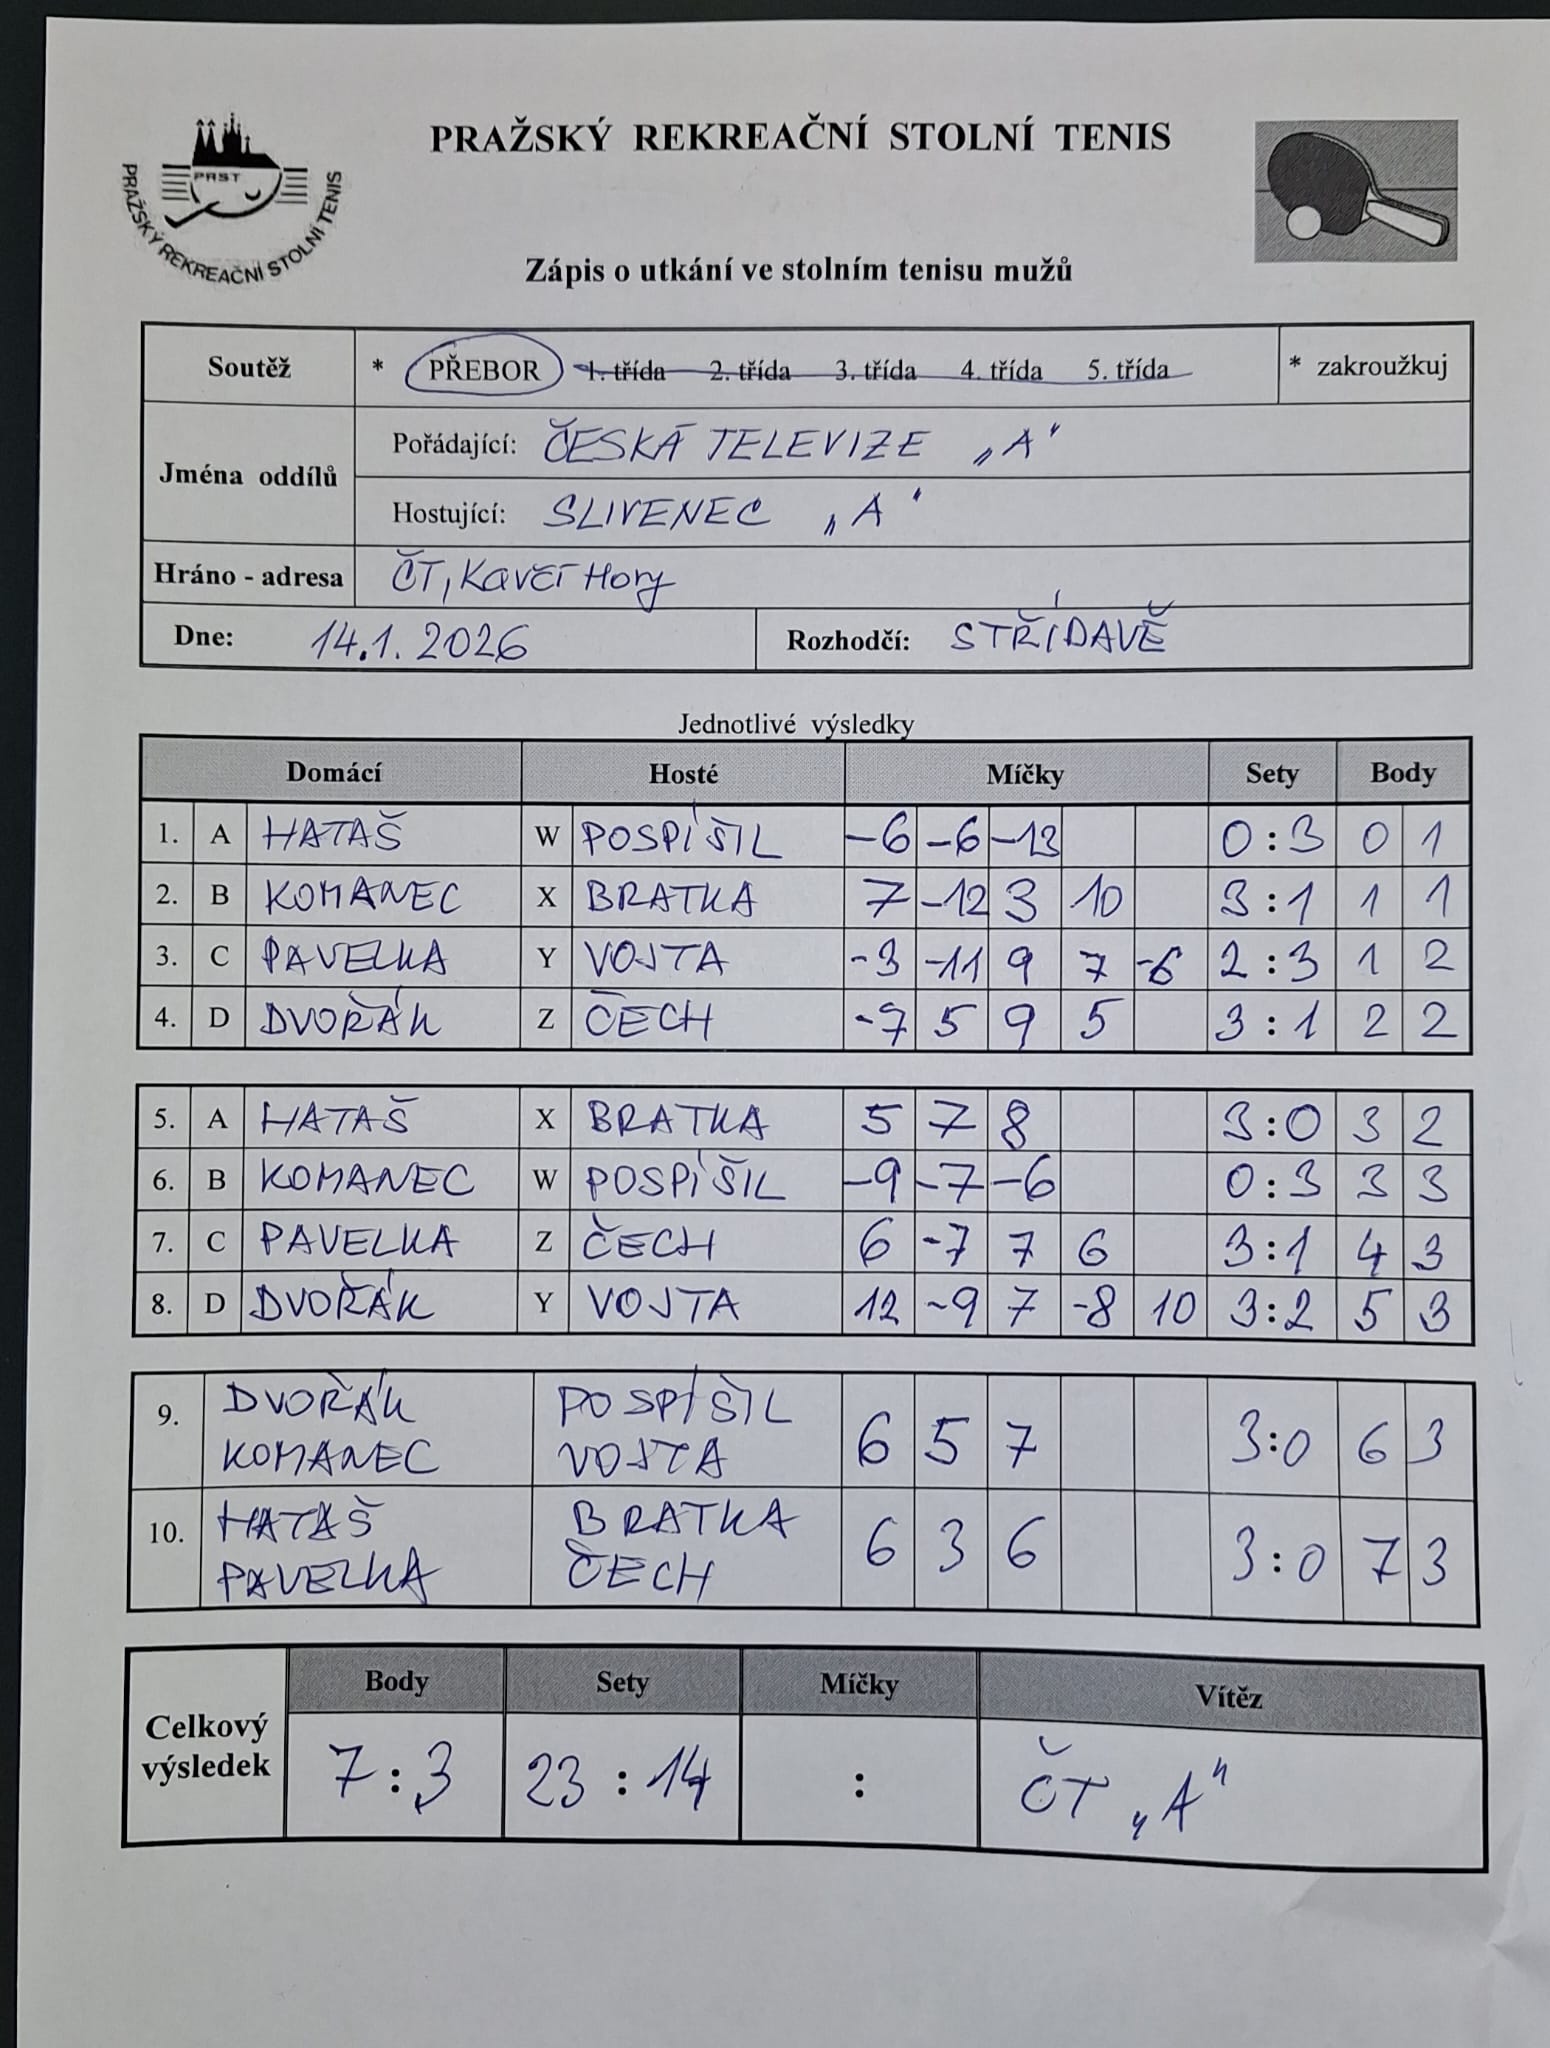 PRAŽSKÝ REKREAČNÍ STOLNÍ TENIS
PRST
PRAŽSKÝ REKREAČNÍ STOLNÍ TENIS
Zápis o utkání ve stolním tenisu mužů
Soutěž * PŘEBOR 1. třída 2. třída 3. třída 4. třída 5. třída * zakroužkuj
Jména oddílů
Pořádající: ČESKÁ TELEVIZE „A"
Hostující: SLIVENEC „A"
Hráno - adresa ČT, Kavčí Hory
Dne: 14.1.2026 Rozhodčí: STŘÍDAVĚ
Jednotlivé výsledky
Domácí Hosté Míčky Sety Body
1. A HATAŠ W POSPÍŠIL -6 -6 -13 0:3 0 1
2. B KOMANEC X BRATKA 7 -12 3 10 3:1 1 1
3. C PAVELKA Y VOJTA -3 -11 9 7 -6 2:3 1 2
4. D DVOŘÁK Z ČECH -7 5 9 5 3:1 2 2
5. A HATAŠ X BRATKA 5 7 8 3:0 3 2
6. B KOMANEC W POSPÍŠIL -9 -7 -6 0:3 3 3
7. C PAVELKA Z ČECH 6 -7 7 6 3:1 4 3
8. D DVOŘÁK Y VOJTA 12 -9 7 -8 10 3:2 5 3
9. DVOŘÁK POSPÍŠIL
KOMANEC VOJTA 6 5 7 3:0 6 3
10. HATAŠ BRATKA
PAVELKA ČECH 6 3 6 3:0 7 3
Celkový výsledek
Body Sety Míčky Vítěz
7:3 23:14 : ČT „A"